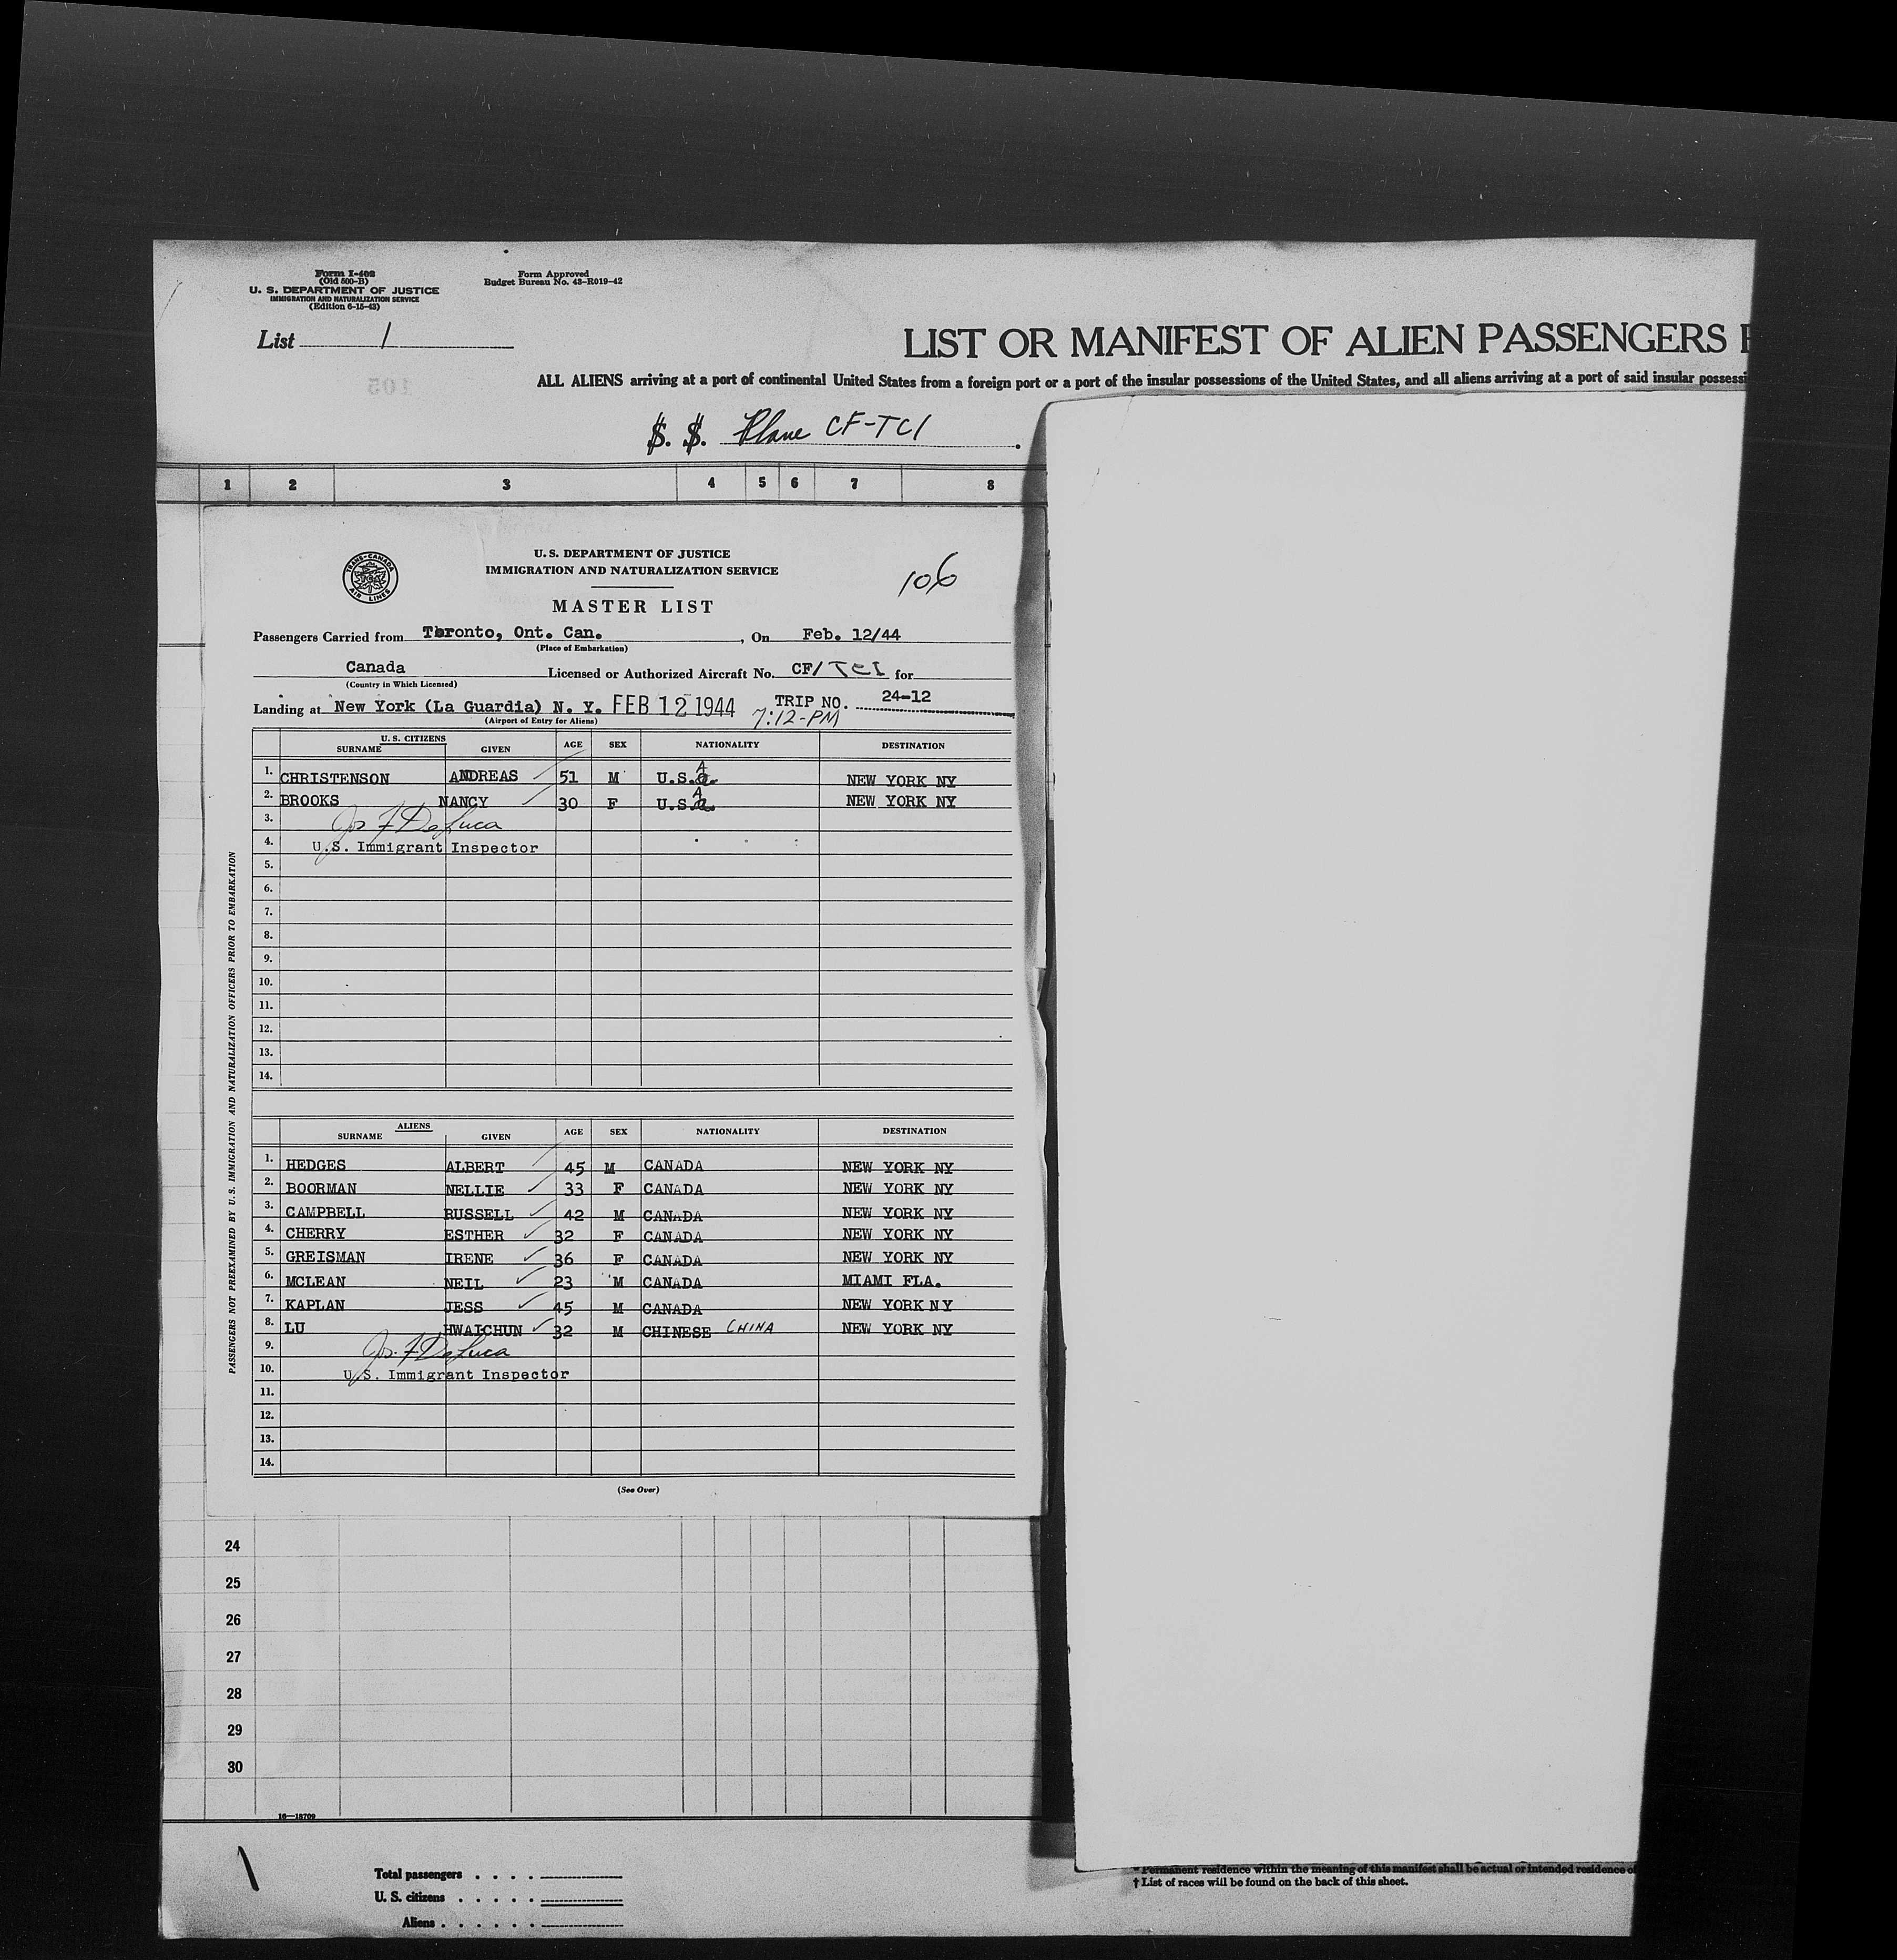 Form I-402
(Old 500-B)
U. S. DEPARTMENT OF JUSTICE
IMMIGRATION AND NATURALIZATION SERVICE
(Edition 6-15-43)
Form Approved
Budget Bureau No. 43-R019-42
List 1
LIST OR MANIFEST OF ALIEN PASSENGERS
105
ALL ALIENS arriving at a port of continental United States from a foreign port or a port of the insular possessions of the United States, and all aliens arriving at a port of said insular possessi
S. S. Plane CF-TCI
1 2 3 4 5 6 7 8
TRANS-CANADA AIR LINES
U. S. DEPARTMENT OF JUSTICE
IMMIGRATION AND NATURALIZATION SERVICE
106
MASTER LIST
Passengers Carried from Toronto, Ont. Can. , On Feb. 12/44
(Place of Embarkation)
Canada Licensed or Authorized Aircraft No. CF/TCI for
(Country in Which Licensed)
Landing at New York (La Guardia) N. Y. FEB 12 1944 TRIP NO. 24-12
(Airport of Entry for Aliens) 7:12-PM
U. S. CITIZENS
SURNAME GIVEN AGE SEX NATIONALITY DESTINATION
1. CHRISTENSON ANDREAS 51 M U.S.A NEW YORK NY
2. BROOKS NANCY 30 F U.S.A NEW YORK NY
3. Jos F DeLuca
4. U.S. Immigrant Inspector
5.
6.
7.
8.
9.
10.
11.
12.
13.
14.
ALIENS
SURNAME GIVEN AGE SEX NATIONALITY DESTINATION
1. HEDGES ALBERT 45 M CANADA NEW YORK NY
2. BOORMAN NELLIE 33 F CANADA NEW YORK NY
3. CAMPBELL RUSSELL 42 M CANADA NEW YORK NY
4. CHERRY ESTHER 32 F CANADA NEW YORK NY
5. GREISMAN IRENE 36 F CANADA NEW YORK NY
6. MCLEAN NEIL 23 M CANADA MIAMI FLA.
7. KAPLAN JESS 45 M CANADA NEW YORK NY
8. LU HWAICHUN 32 M CHINESE CHINA NEW YORK NY
9. Jos. F DeLuca
10. U.S. Immigrant Inspector
11.
12.
13.
14.
(See Over)
PASSENGERS NOT PREEXAMINED BY U.S. IMMIGRATION AND NATURALIZATION OFFICERS PRIOR TO EMBARKATION
24
25
26
27
28
29
30
16—18709
Total passengers . . . .
U. S. citizens . . . . .
Aliens . . . . . .
* Permanent residence within the meaning of this manifest shall be actual or intended residence of
† List of races will be found on the back of this sheet.